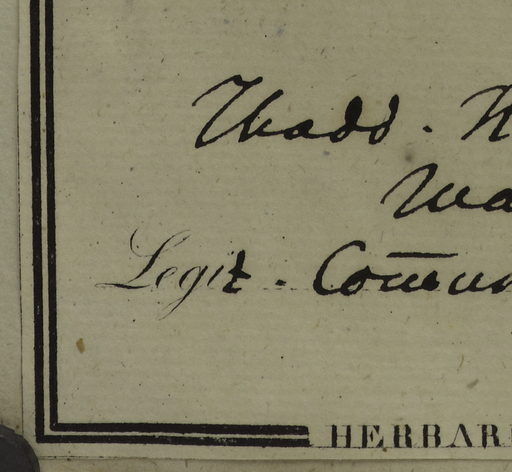 Thadd. H
Ma
Legit. Com̅un
HERBAR